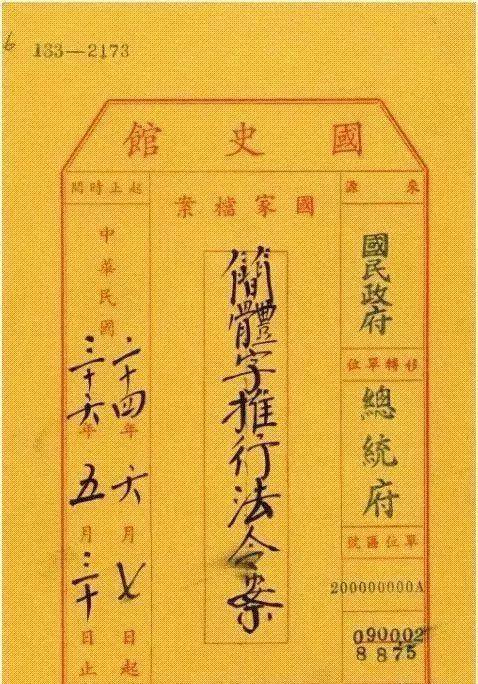 6
133—2173
國史館
來源
國民政府
移轉單位
總統府
單位區號
200000000A
090002
8875
國家檔案
簡體字推行法令案
起止時間
中華民國
二十四年六月七日起
三十六年五月三十日止